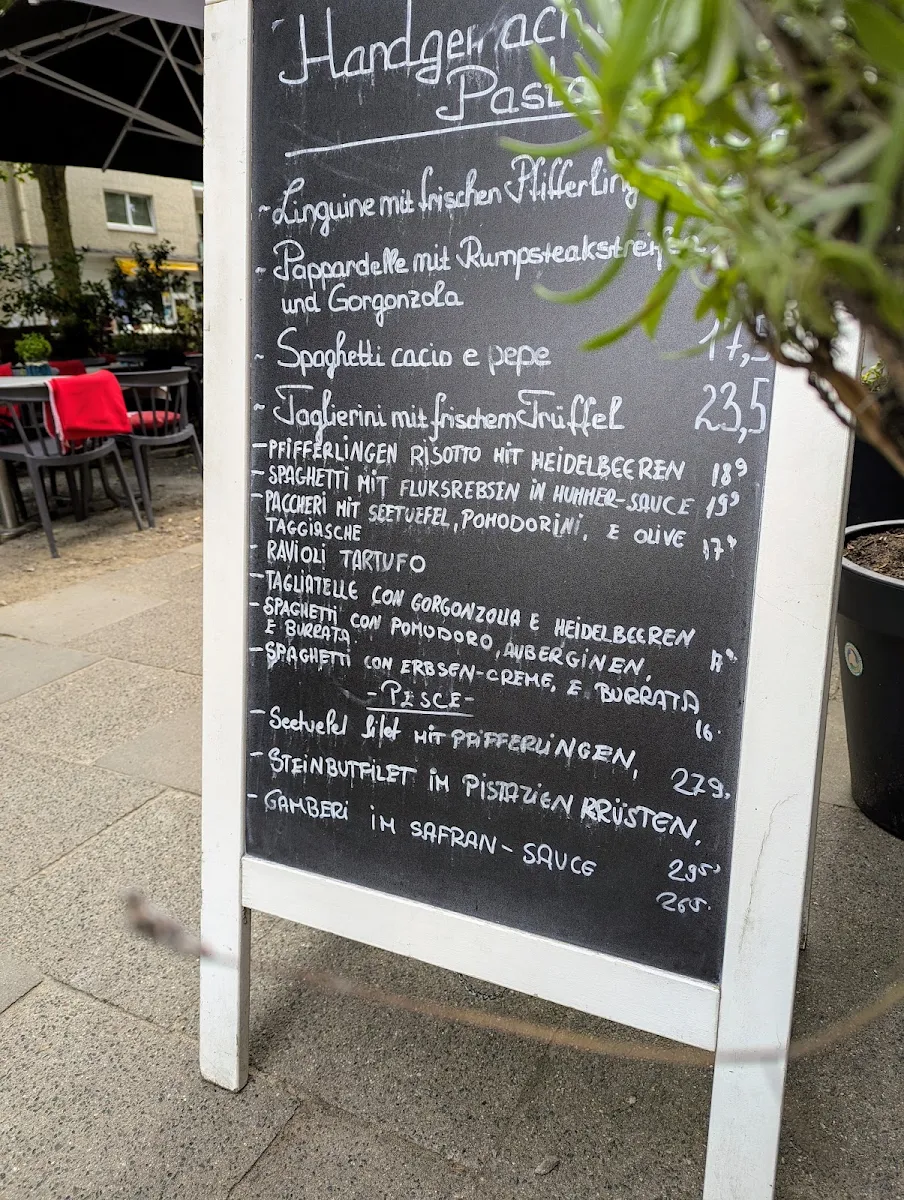 Handgemach
Pasta
~ Linguine mit frischen Pfifferling
~ Pappardelle mit Rumpsteakstreifen
und Gorgonzola
~ Spaghetti cacio e pepe 17,5
~ Taglierini mit frischem Trüffel 23,5
- PFIFFERLINGEN RISOTTO MIT HEIDELBEEREN 18⁹
- SPAGHETTI MIT FLUKSREBSEN IN HUMMER-SAUCE 19⁹
- PACCHERI MIT SEETUEFEL, POMODORINI, E OLIVE
TAGGIASCHE
- RAVIOLI TARTUFO
- TAGLIATELLE CON GORGONZOLLA E HEIDELBEEREN
- SPAGHETTI CON POMODORO, AUBERGINEN,
E BURRATA
- SPAGHETTI CON ERBSEN-CREME, E BURRATA 16.
- PESCE -
- Seetuefel filet MIT PFIFFERLINGEN, 279.
- STEINBUTFILET IM PISTAZIEN KRÜSTEN, 295
- GAMBERI IM SAFRAN - SAUCE 265.